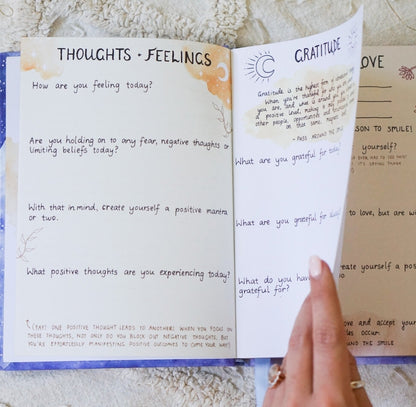 THOUGHTS + FEELINGS
How are you feeling today?
Are you holding on to any fear, negative thoughts or
limiting beliefs today?
With that in mind, create yourself a positive mantra
or two.
What positive thoughts are you experiencing today?
(PSST! ONE POSITIVE THOUGHT LEADS TO ANOTHER! WHEN YOU FOCUS ON
THESE THOUGHTS, NOT ONLY DO YOU BLOCK OUT NEGATIVE THOUGHTS, BUT
YOU'RE EFFORTLESSLY MANIFESTING POSITIVE OUTCOMES TO COME YOUR WAY!)
GRATITUDE
Gratitude is the highest form of
When you're thankful for who you are,
you are, and what is around you
a positive level, making
other people, opportunities and
on that same
- PASS AROUND THE SMILE
What are you grateful for today
What are you grateful for
What do you have
grateful for?
OVE
SON TO SMILE!
yourself?
to love, but are
create yourself a
love and accept your
occur.
THE SMILE